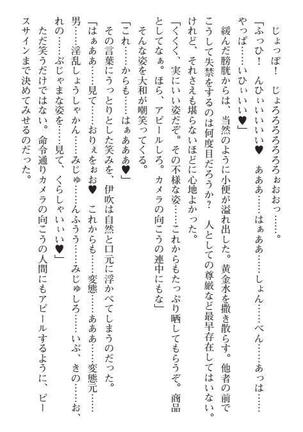 「じょっぽ！　じょろろろろろろぉおおっ……。
「ふっひ！　んひぃいいいい♥　あああ……しょん……べん……あっは……
やっぱ……いひぃいいい♥」
　緩んだ膀胱からは、当然のように小便が溢れ出した。黄金水を撒き散らす。他者の前で
こうして失禁をするのは何度目だろうか？　人としての尊厳など最早存在してはいない。
けれど、それさえも堪らないほどに心地よかった。
「くくく、実にいい姿だぞ。その不様な姿……これからもたっぷり晒してもらうぞ。商品
としてなぁ。ほら、アピールしろ。カメラの向こうの連中にもな」
　そんな姿を大和が嘲笑ってくる。
「これ……からも……はぁああ♥」
　その言葉にうっとりとした笑みを、伊吹は自然と口元に浮かべてしまうのだった。
「はぁああ……見て……おりぇをぉお♥　これからも……変態……あああ……変態元……
男……淫乱しょうしゃかん……みじゅ……んふうう……みじゅしろ……いぶ、きの……お、
れの……ぶじゃまな姿を……見て、くらしゃいぃい♥」
　ただ笑うだけではない。命令通りカメラの向こうの人間にもアピールするように、ピー
スサインまで決めてみせるのだった。